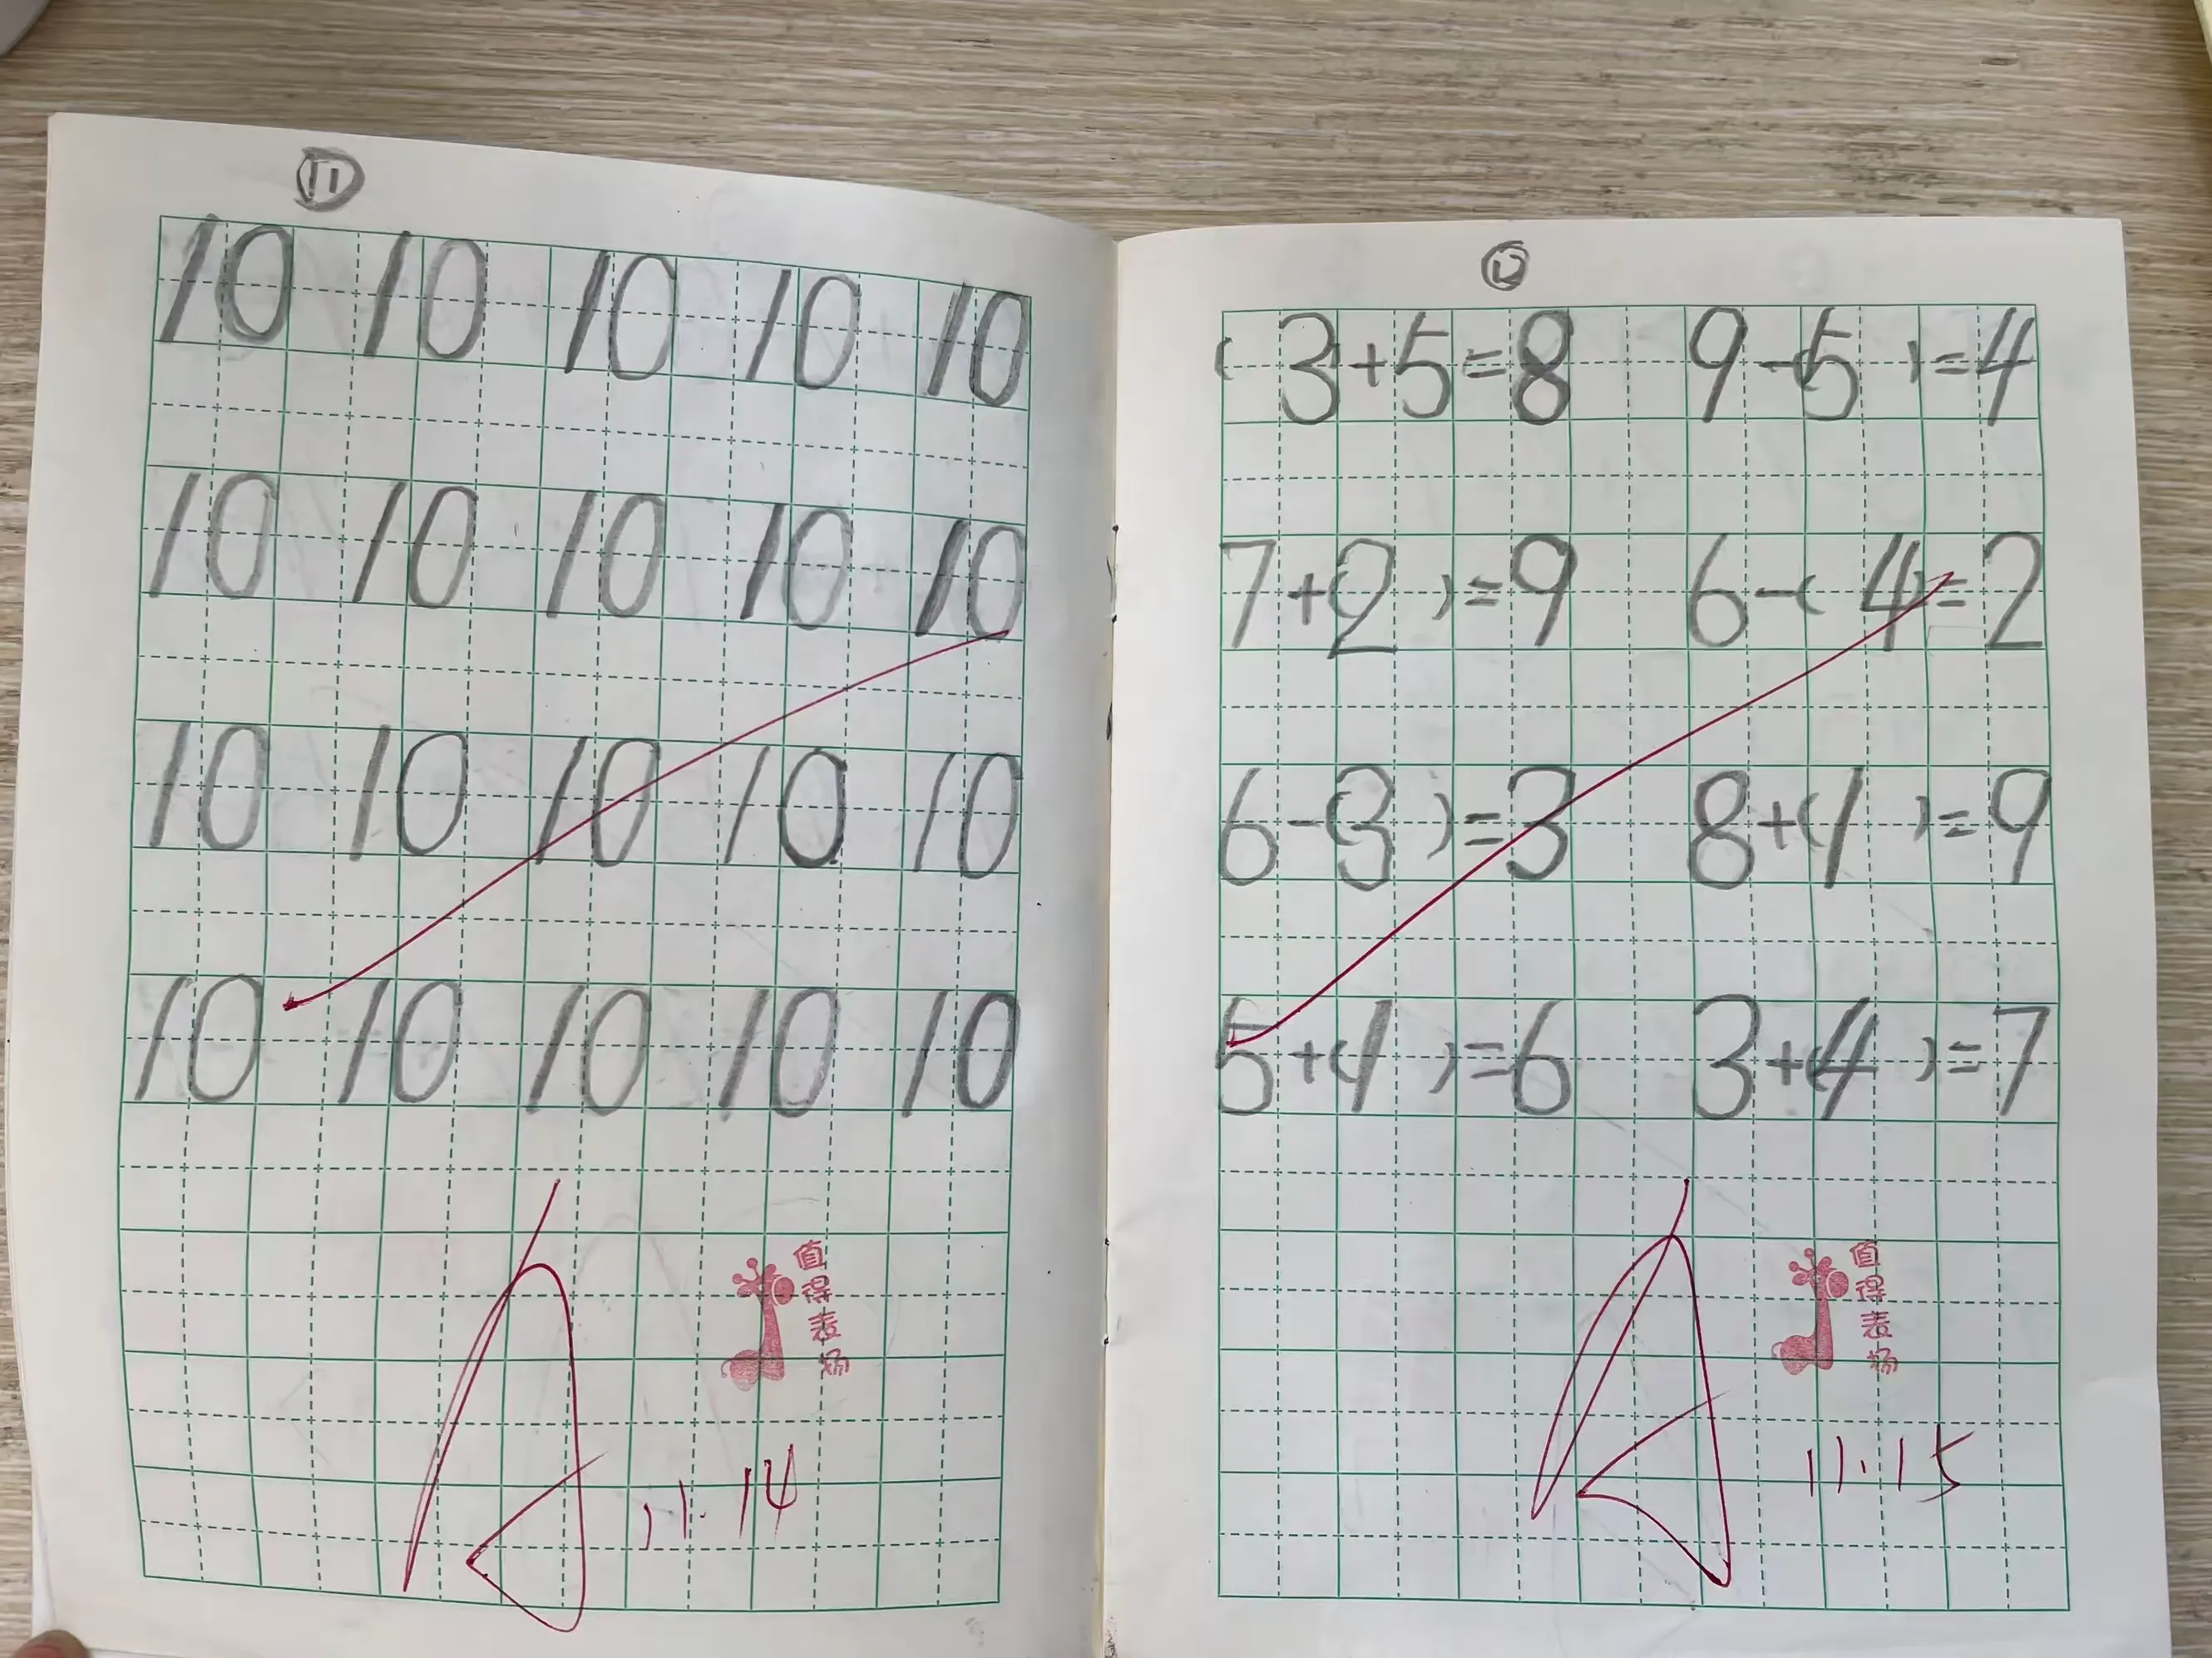 ⑪
10 10 10 10 10
10 10 10 10 10
10 10 10 10 10
10 10 10 10 10
A
值得表扬
11.14
⑫
( 3+5=8 9-(5 )=4
7+(2 )=9 6-( 4)=2
6-(3 )=3 8+(1 )=9
5+(1 )=6 3+(4 )=7
A
值得表扬
11.15